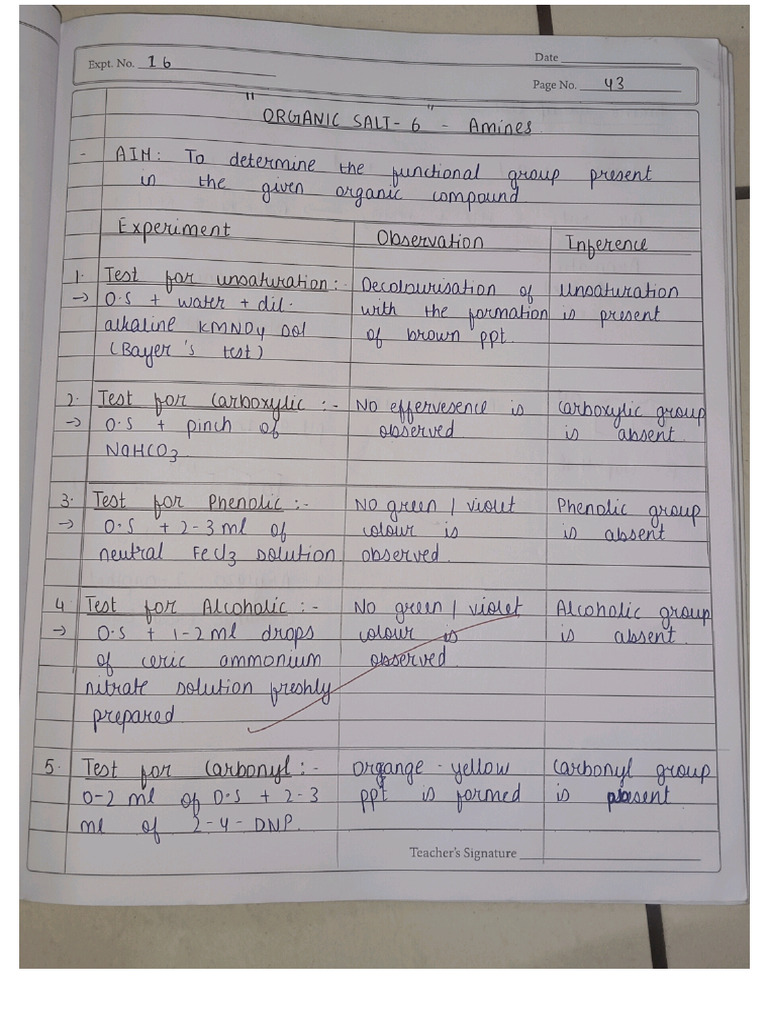 Expt. No. 16
Date
Page No. 43
"ORGANIC SALT-6" - Amines
- AIM: To determine the functional group present
in the given organic compound
Experiment Observation Inference
1. Test for unsaturation:- Decolourisation of Unsaturation
→ O.S + water + dil. with the formation is present
alkaline KMNO4 sol of brown ppt.
(Bayer's test)
2. Test for Carboxylic :- No effervesence is Carboxylic group
→ O.S + pinch of observed is absent
NaHCO3
3. Test for Phenolic :- No green / violet Phenolic group
→ O.S + 2-3 ml of colour is is absent
neutral FeCl3 solution observed
4 Test for Alcoholic :- No green / violet Alcoholic group
→ O.S + 1-2 ml drops colour is is absent
of ceric ammonium observed
nitrate solution freshly
prepared
5. Test for Carbonyl :- Organge - yellow Carbonyl group
0-2 ml of O.S + 2-3 ppt is formed is present
ml of 2-4-DNP.
Teacher's Signature